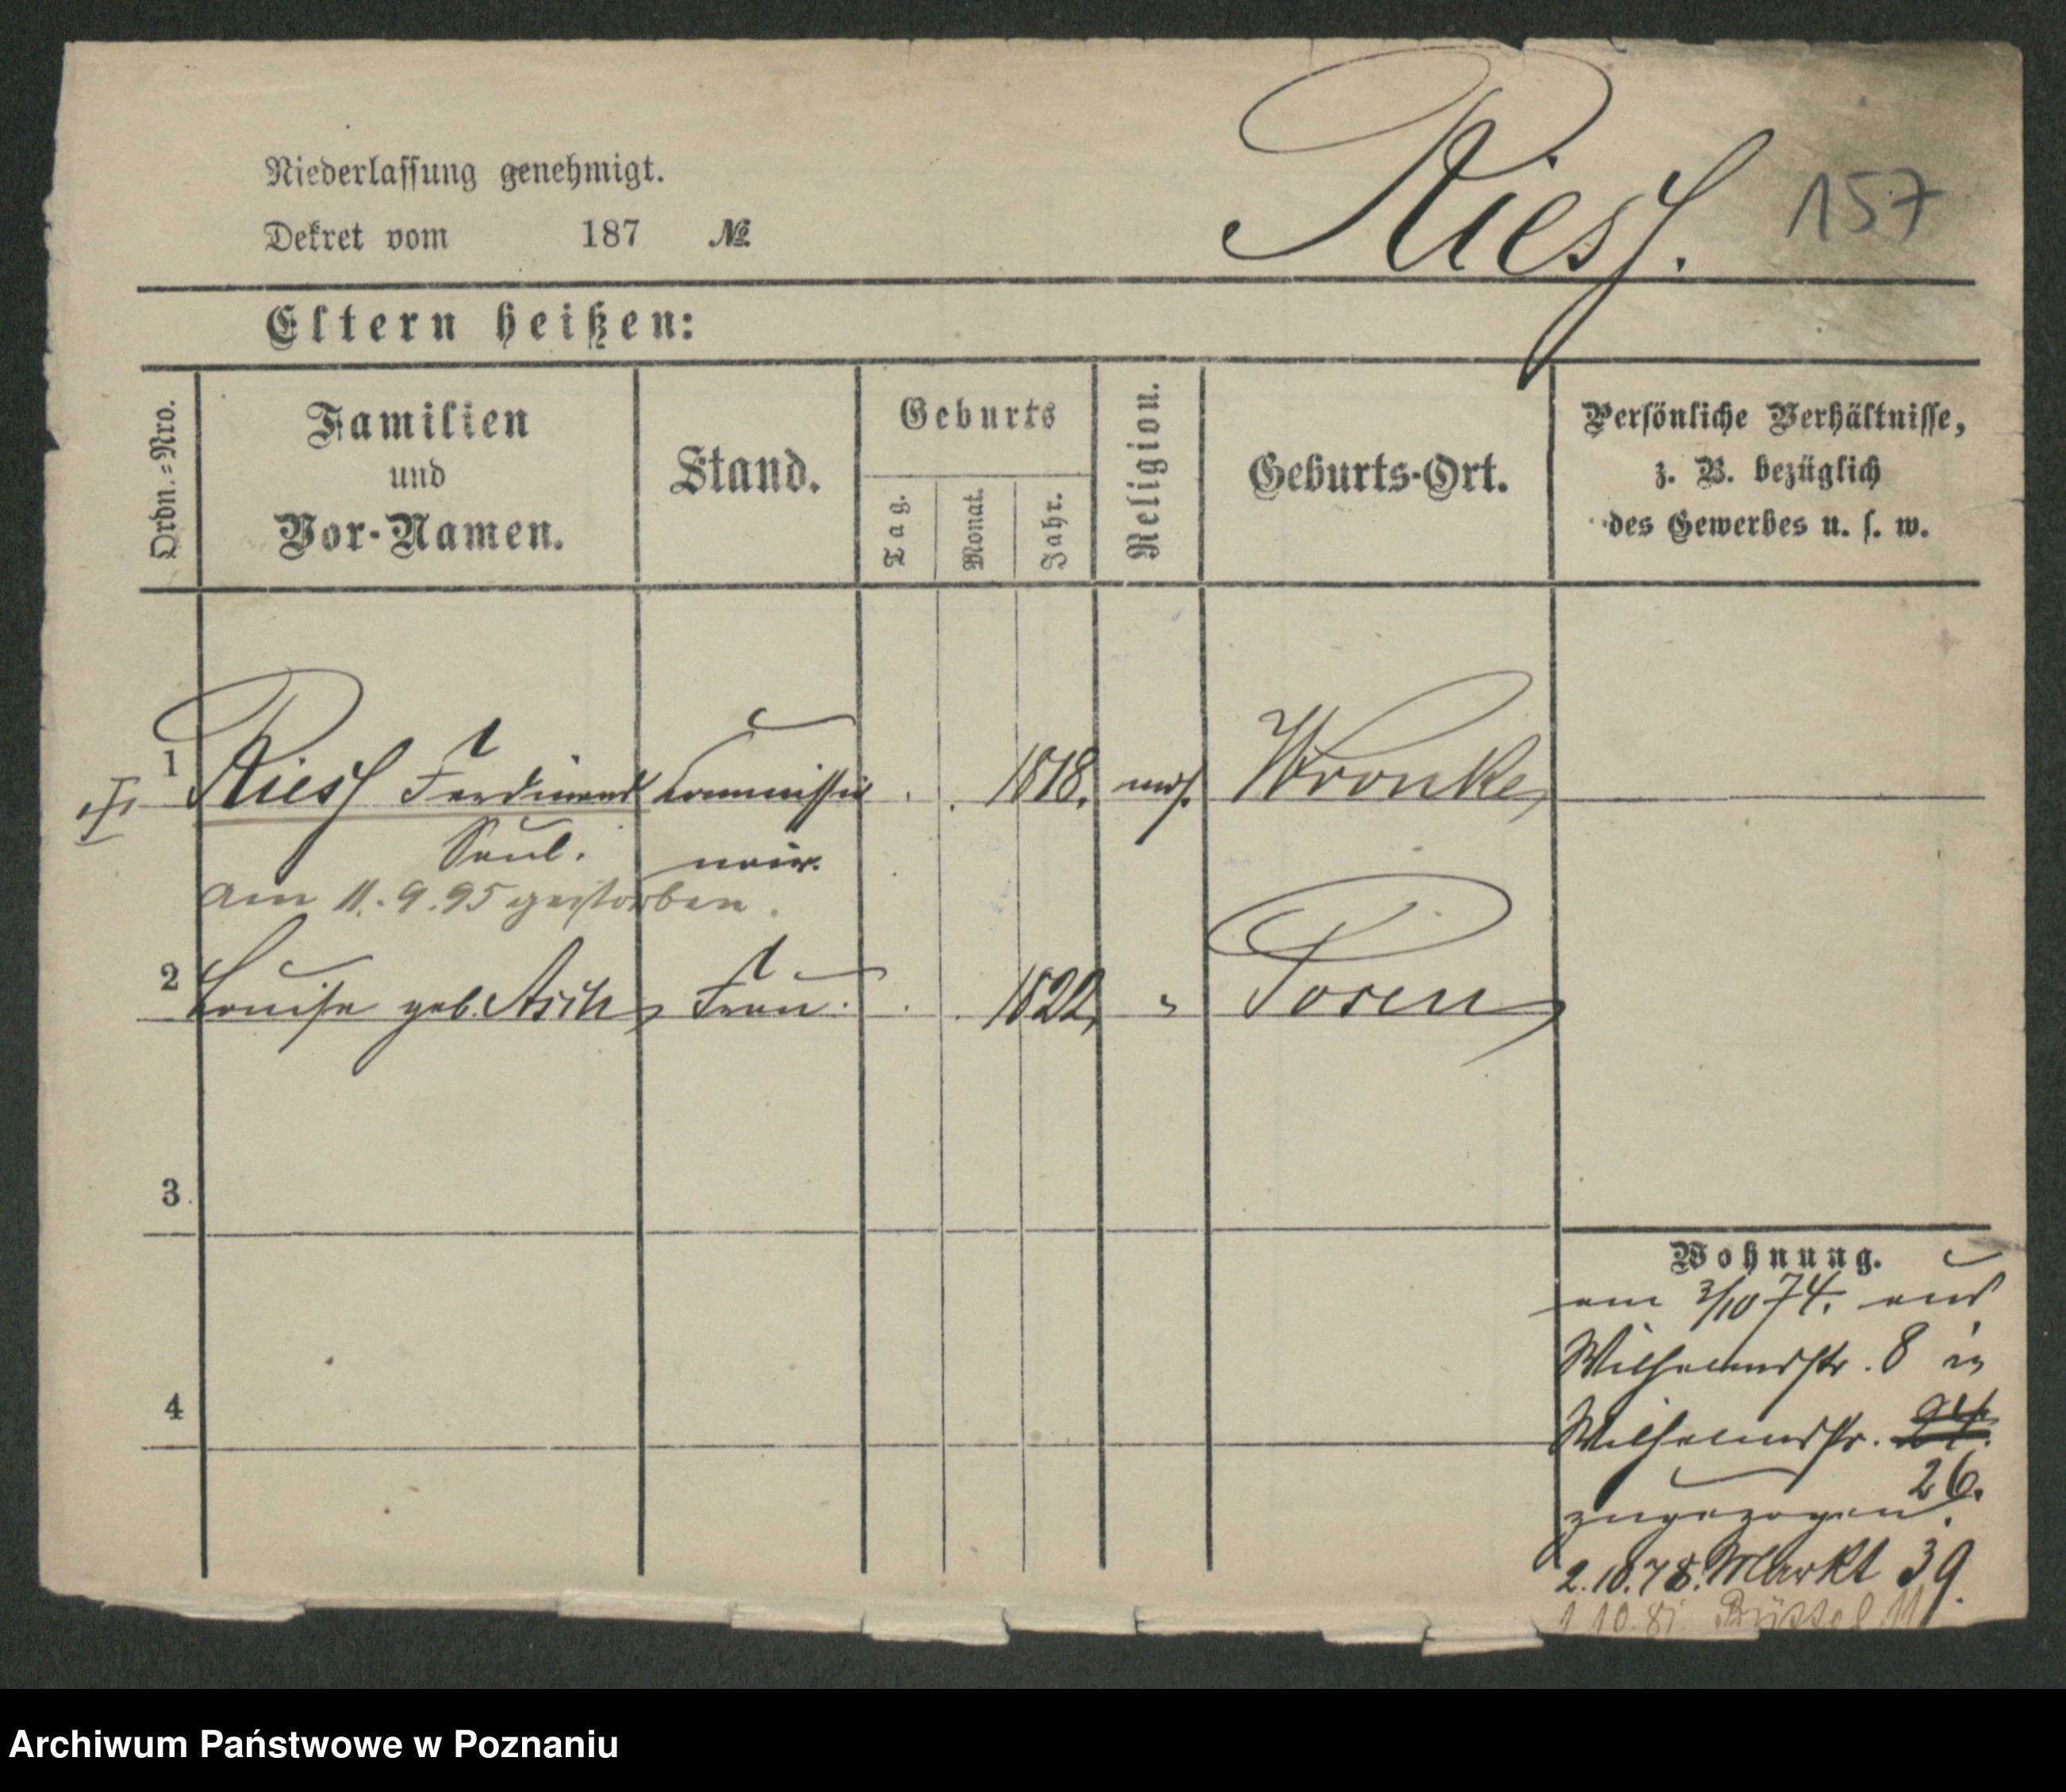 Niederlassung genehmigt.
Dekret vom 187 №
Riess.
157
Eltern heißen:
Ordn.=Nro.
Familien
und
Vor-Namen.
Stand.
Geburts
Tag.
Monat.
Jahr.
Religion.
Geburts-Ort.
Persönliche Verhältnisse,
z. B. bezüglich
des Gewerbes u. s. w.
1 Riess Ferdinand Commissio 1818. mos. Wronke
Saul. nair.
am 11.9.95 gestorben.
2 Louise geb. Asch Frau. 1822. " Posen
3
4
Wohnung.
am 2/10 74. aus
Wilhelmstr. 8 in
Wilhelmstr.
26.
zugezogen.
2.10.78. Markt 39.
1 10.81
Archiwum Państwowe w Poznaniu